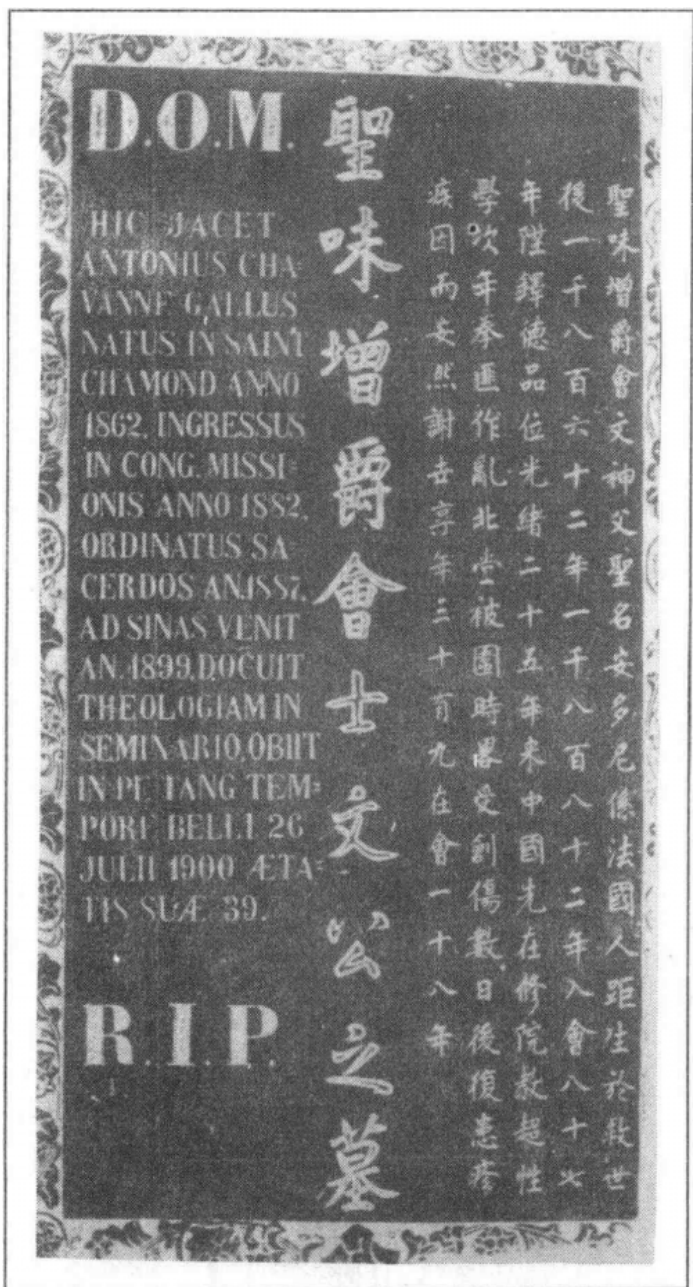 D.O.M.
HIC JACET
ANTONIUS CHA-
VANNE GALLUS
NATUS IN SAINT
CHAMOND ANNO
1862, INGRESSUS
IN CONG. MISSI-
ONIS ANNO 1882,
ORDINATUS SA-
CERDOS AN.1887,
AD SINAS VENIT
AN.1899,DOCUIT
THEOLOGIAM IN
SEMINARIO,OBIIT
IN PE TANG TEM-
PORE BELLI 26
JULII 1900 ÆTA-
TIS SUÆ 39.
R.I.P.
聖味增爵會士文公之墓
聖味增爵會文神父聖名安多尼係法國人距生於救世
後一千八百六十二年一千八百八十二年入會八十七
年陞鐸德品位光緒二十五年来中國先在修院教超性
學次年拳匪作亂北堂被圍時畧受創傷數日後復患疹
疾因而安然謝世享年三十有九在會一十八年